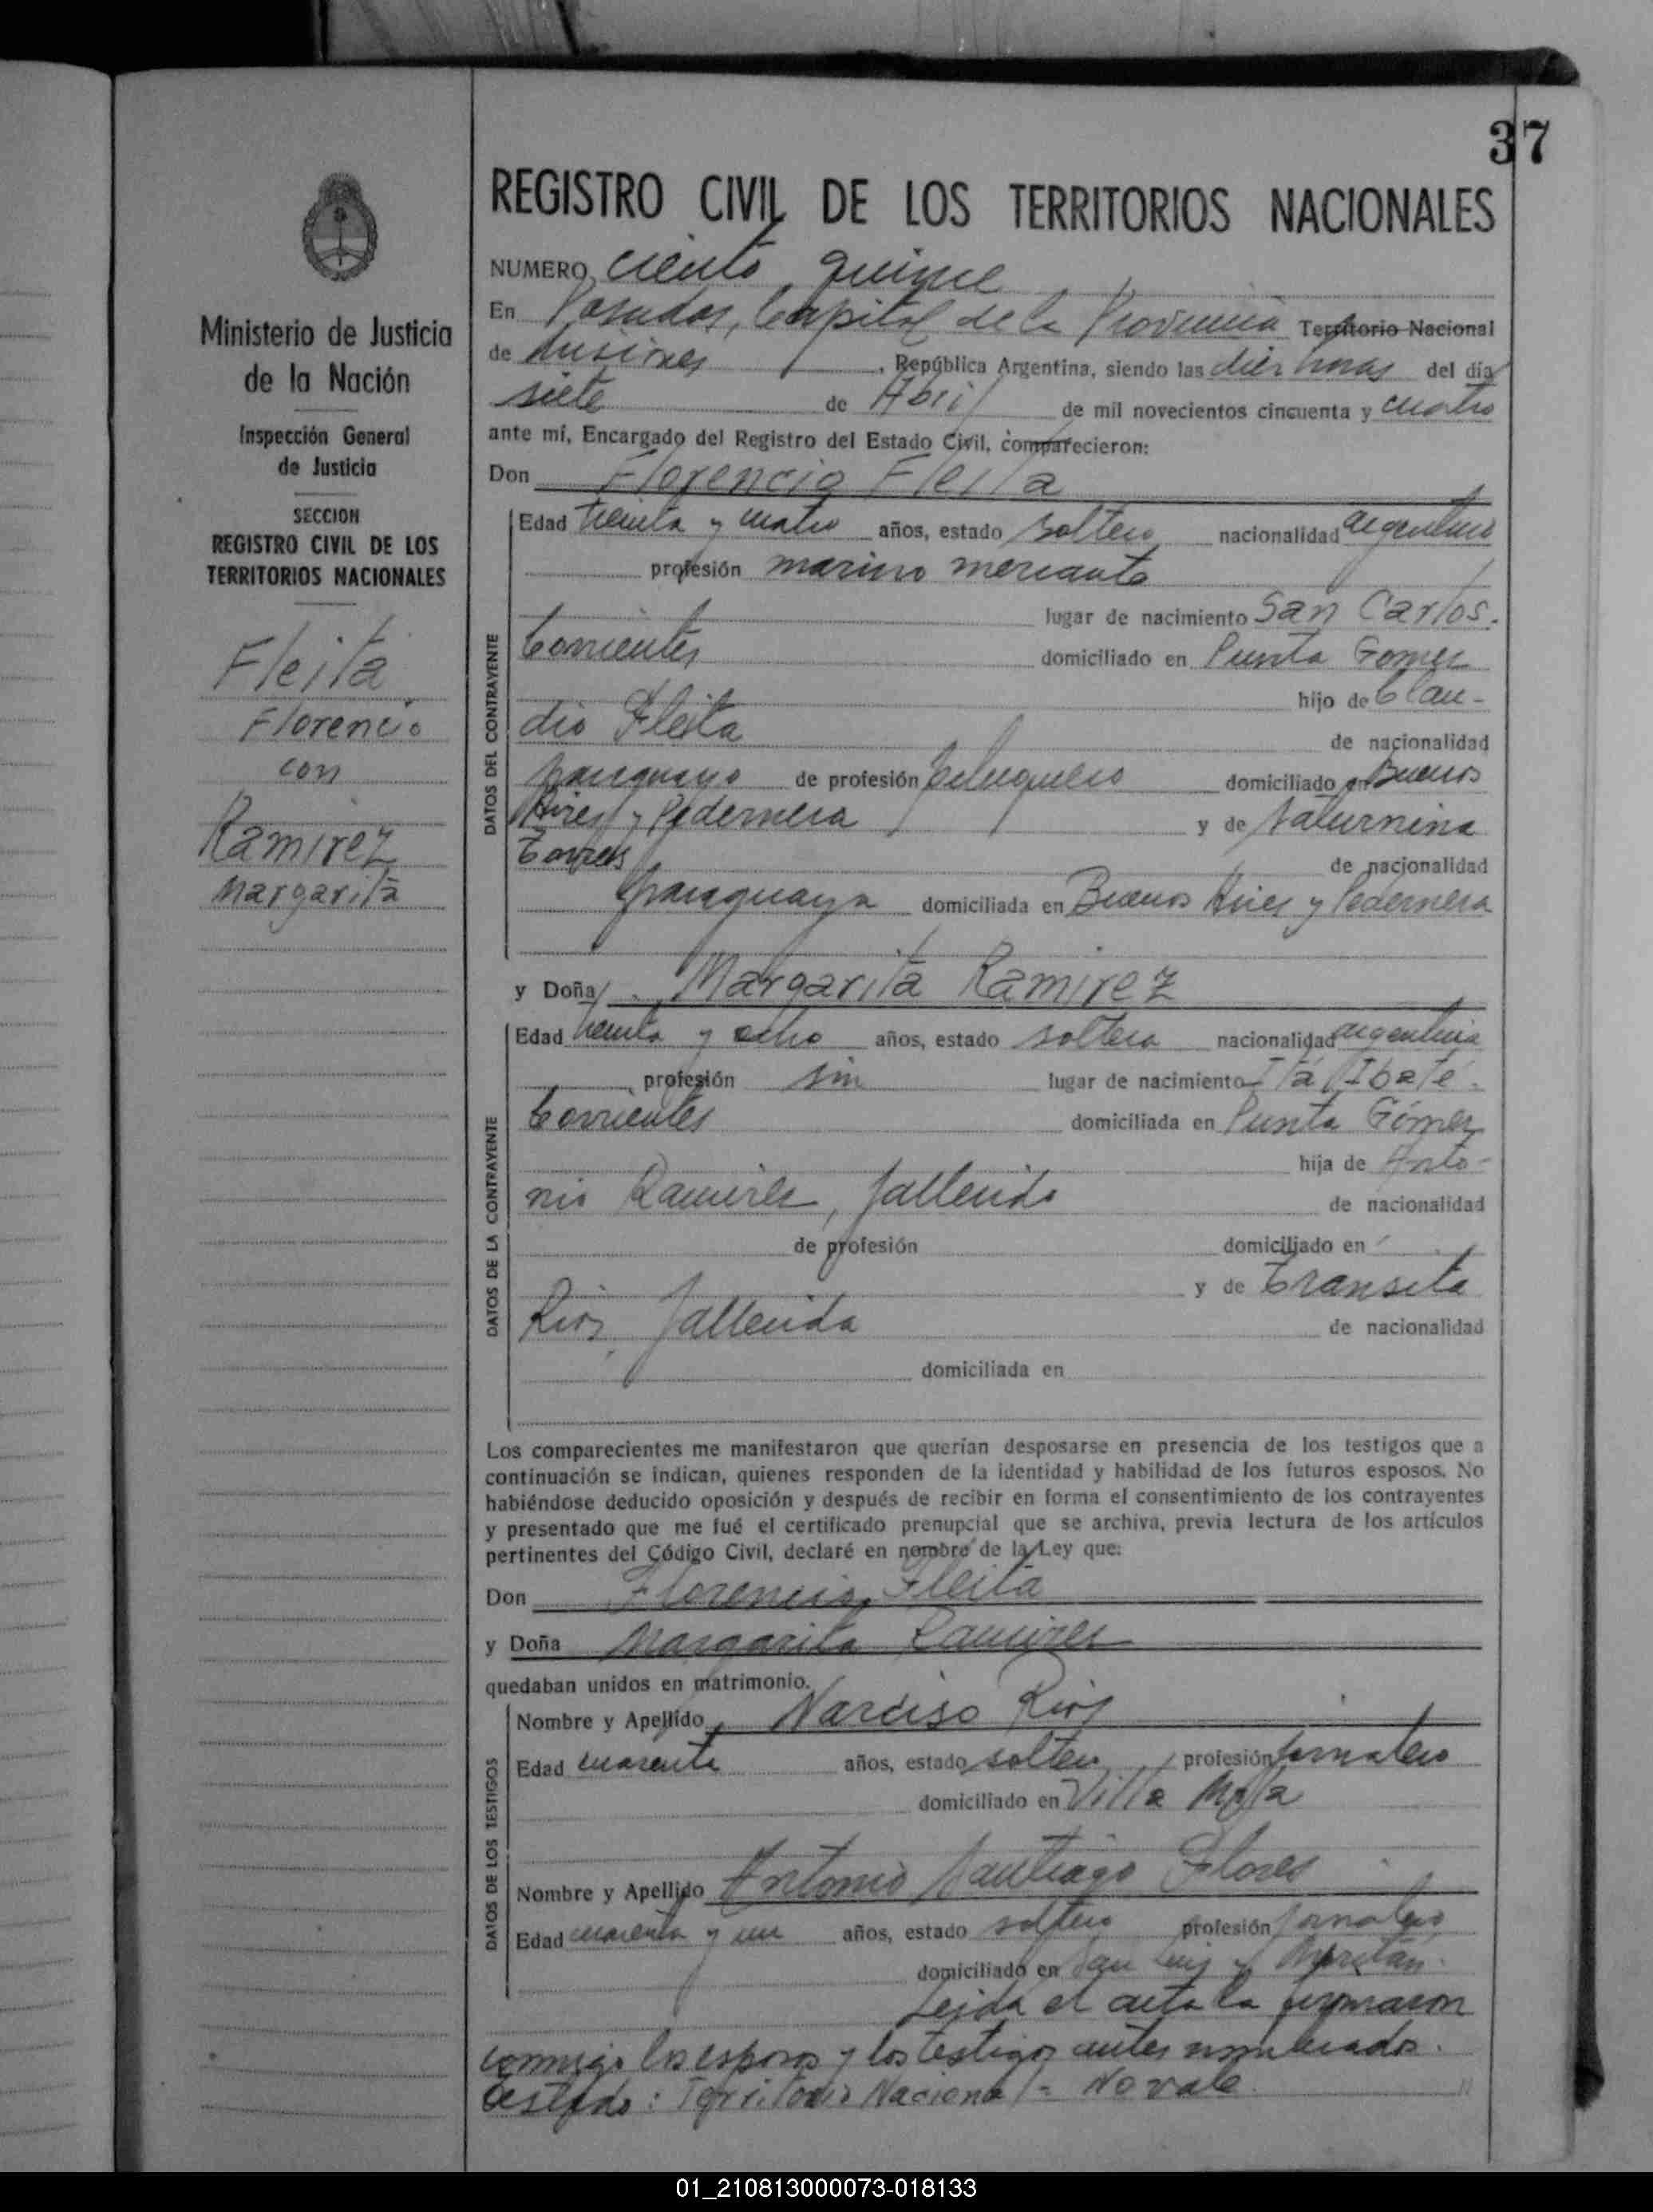 37
REGISTRO CIVIL DE LOS TERRITORIOS NACIONALES
Ministerio de Justicia
de la Nación
Inspección General
de Justicia
SECCION
REGISTRO CIVIL DE LOS
TERRITORIOS NACIONALES
Fleita
Florencio
con
Ramirez
Margarita
NUMERO ciento quince
En Posadas, Capital de la Provincia Territorio Nacional
de Misiones, República Argentina, siendo las diez horas del día
siete de Abril de mil novecientos cincuenta y cuatro
ante mí, Encargado del Registro del Estado Civil, comparecieron:
Don Florencio Fleita
DATOS DEL CONTRAYENTE
Edad treinta y cuatro años, estado soltero nacionalidad argentino
profesión marino mercante
lugar de nacimiento San Carlos.
Corrientes domiciliado en Punta Gomez
hijo de Clau-
dio Fleita de nacionalidad
paraguayo de profesión peluquero domiciliado en Buenos
Aires y Pedernera y de Saturnina
Torres de nacionalidad
paraguaya domiciliada en Buenos Aires y Pedernera
y Doña Margarita Ramirez
DATOS DE LA CONTRAYENTE
Edad treinta y ocho años, estado soltera nacionalidad argentina
profesión sin lugar de nacimiento Itá Ibaté.
Corrientes domiciliada en Punta Gómez
hija de Anto-
nio Ramirez, fallecido de nacionalidad
de profesión domiciliado en
y de Transita
Rios, fallecida de nacionalidad
domiciliada en
Los comparecientes me manifestaron que querían desposarse en presencia de los testigos que a
continuación se indican, quienes responden de la identidad y habilidad de los futuros esposos. No
habiéndose deducido oposición y después de recibir en forma el consentimiento de los contrayentes
y presentado que me fué el certificado prenupcial que se archiva, previa lectura de los artículos
pertinentes del Código Civil, declaré en nombre de la Ley que:
Don Florencio Fleita
y Doña Margarita Ramirez
quedaban unidos en matrimonio.
DATOS DE LOS TESTIGOS
Nombre y Apellido Narciso Rios
Edad cuarenta años, estado soltero profesión jornalero
domiciliado en Villa Mola
Nombre y Apellido Antonio Santiago Flores
Edad cuarenta y un años, estado soltero profesión jornalero
domiciliado en San Luis y
Leida el acta la firmaron
conmigo los esposos y los testigos antes nombrados.
Testado: Territorio Nacional = No vale
01_210813000073-018133